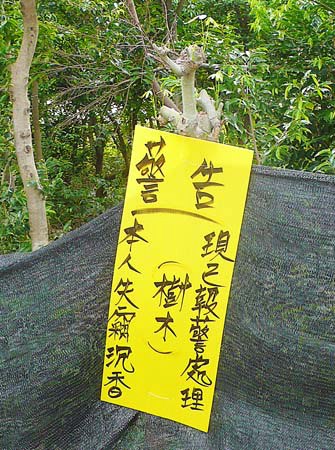 警告
本人失竊沉香
(樹木)
現已報警處理